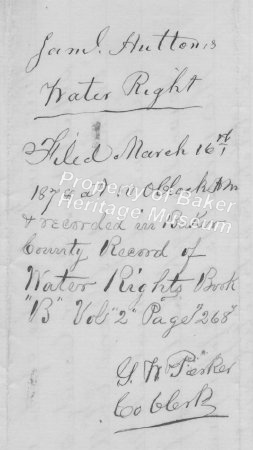 Saml. Hutton's
Water Right
Filed March 16th
187 at o'clock AM
& recorded in Baker
County Record of
Water Rights Book
"B" Vol "2" Page "268"
Co Clerk
Property of Baker
Heritage Museum